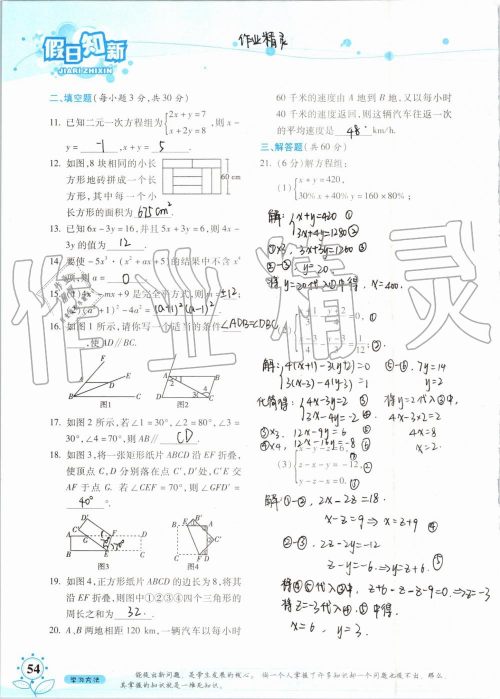 假日知新
JIARI ZHIXIN
作业精灵
二、填空题(每小题3分,共30分)
11. 已知二元一次方程组为{2x+y=7, x+2y=8},则x-
y= -1 ,x+y= 5 .
12. 如图,8块相同的小长
方形地砖拼成一个长
方形,其中每一个小
长方形的面积为 675cm² .
60 cm
13. 已知6x-3y=16,并且5x+3y=6,则4x-
3y的值为 12 .
14. 要使-5x³·(x²+ax+5)的结果中不含x⁴
项,则a= 0
15. (1)4x²-mx+9是完全平方式,则m= ±12 ;
(2)(a²+1)²-4a²= (a+1)²(a-1)² .
16. 如图1所示,请你写一个适当的条件 ∠ADB=∠DBC
,使AD∥BC.
图1
图2
17. 如图2所示,若∠1=30°,∠2=80°,∠3=
30°,∠4=70°,则AB∥ CD .
18. 如图3,将一张矩形纸片ABCD沿EF折叠,
使顶点C,D分别落在点C′,D′处,C′E交
AF于点G. 若∠CEF=70°,则∠GFD′=
40° .
图3
图4
19. 如图4,正方形纸片ABCD的边长为8,将其
沿EF折叠,则图中①②③④四个三角形的
周长之和为 32 .
20. A,B两地相距120 km,一辆汽车以每小时
60千米的速度由A地到B地,又以每小时
40千米的速度返回,则这辆汽车往返一次
的平均速度是 48 km/h.
三、解答题(共60分)
21. (6分)解方程组:
(1){x+y=420,
30%x+40%y=160×80%;
解:{x+y=420 ①
3x+4y=1280 ②
①×3, 3x+3y=1260 ③
②-③ y=20.
将y=20代入①中得, x=400.
解:{4(x+1)-3(y+2)=0
3(x-3)-4(y-3)=1
化简得:{4x-3y=2 ③
3x-4y=-2 ④
③×3, 12x-9y=6 ⑤
④×4, 12x-16y=-8 ⑥
⑤-⑥, 7y=14
y=2
将y=2代入③中,
4x-3×2=2
4x=8
x=2.
(3){x-y-z=6,
y-z-x=-12,
z-x-y=0.
解 ①-②, 2x-2z=18.
x-z=9 ⇒ x=z+9 ④
②-③, 2z-2y=-12
z-y=-6 ⇒ y=z+6. ⑤
将④⑤代入①中, z+6-z-z-9=0 ⇒ z=-3
将z=-3代入④,⑤中得.
x=6, y=3.
作业精灵
54
学习方法
能提出新问题,是学生发展的核心。 如一个人掌握了许多知识却一个问题也提不出,那么,
其掌握的知识就是一堆死知识。